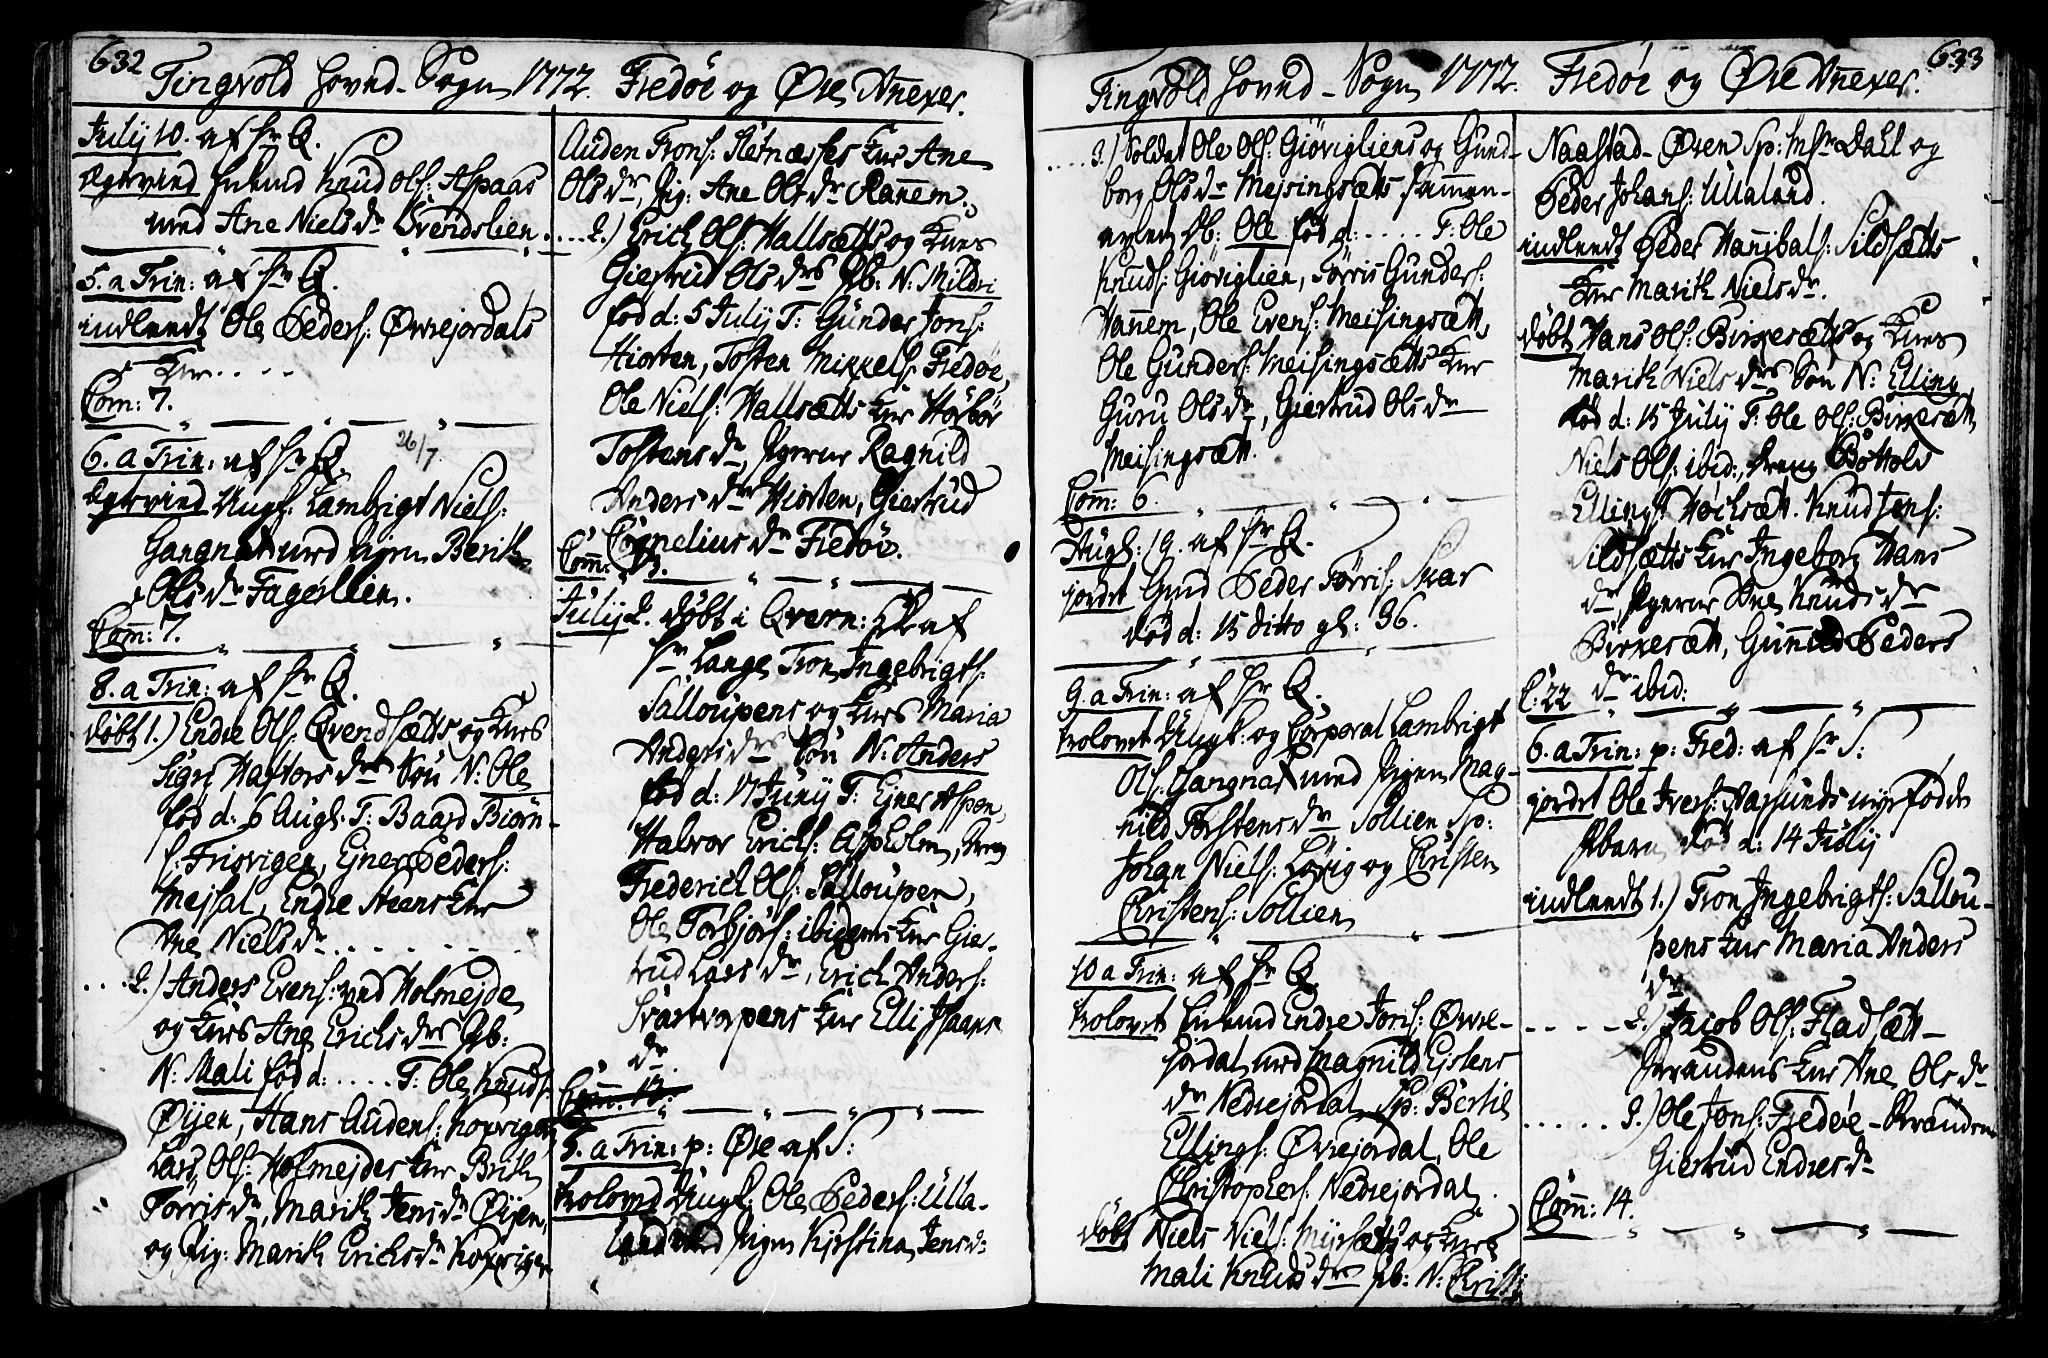 632
Tingvold Hovud-Sogn 1772. Fredöe og Øre Annexer.
July 10. af Hr Q.
Egteviud Enkemd Knud Ols: Aspaas
med Ane Nielsdr Svendslien.
5. a Trin: af Hr Q.
indleedt Ole Peders: Øvrejordals
Kur....
Com: 7.
6. a Trin: af Hr Q. 26/7
Egteviud Ungk: Lambrigt Niels:
Gangnat med Pigen Berith
Olsdr Fagerlien.
Com: 7.
8. a Trin: af Hr Q.
döbt 1.) Endre Ols: Qvendsætts og Kurs
Sigri Hafvorsdrs Sön N: Ole
föd d: 6 Aug: F: Baard Biörn-
s: Frisvigen, Ejner Peders:
Mejsal, Endre Steens Kur
Ane Nielsdr......
....2.) Anders Evens: ved Holmejde
og Kurs Ane Erichsdrs Pb:
N: Mali föd d:.... F: Ole Knuds:
Øijen, Hans Audens: Koxvigen
Lars Ols: Holmejdes Kur Brith
Torrisdr, Marith Jensdr Øijen,
og Pig: Marith Erichsdr Koxvigen
Auden Trons: Sletnæsses Kur Ane
Olsdr, Pig: Ane Olsdr Ranem.
....2.) Erich Ols: Hallsætts og Kurs
Giertrud Olsdrs Pb: N: Mildri
föd d: 5 July F: Gunder Jons:
Hiorten, Tosten Mikkels: Fredöe,
Ole Niels: Hallsætts Kur Horbör
Tostensdr, Pigerne Ragnild
Andersdr Hiorten, Giertrud
Corneliusdr Fredöe.
Comm: 13.
July 2. döbt i Qvern: af
Hr Lange Tron Ingebrigts:
Salloupens og Kurs Maria
Andersdrs Sön N: Anders
föd d: 17 Juny F: Ejner Aspen,
Halvor Erichs: Aspholm, Dreng
Frederich Ols: Salloupen,
Ole Torbjörs: ibidems Kur Gier-
trud Larsdr, Erich Anders:
Svartvapens Kur Elli Isaacs
dr.
Comm: 12.
5. a Trin: p: Øre af S:
troloved Ungk: Ole Peders: Ulla-
land med Pigen Kirstina Jensdr
633
Tingvold Hovud-Sogn 1772. Fredöe og Øre Annexer.
....3.) Soldat Ole Ols: Giövigliens og Gund-
borg Olsdr Meisingsætts sammen-
avlen Pb: Ole föd d:..... F: Ole
Knuds: Giöviglien, Torris Gunders:
Hannem, Ole Evens: Meisingsætt,
Ole Gunders: Meisingsætts Kur
Guru Olsdr, Giertrud Olsdr
Meisingsætt.
Com: 6.
Aug: 19. af Hr Q.
jordet Gmd Peder Torris: Skar
död d: 15 ditto gl: 36.
9. a Trin: af Hr Q.
trolovet Ungk: og Corporal Lambrigt
Ols: Gangnat med Pigen Mag-
nild Torstensdr Sollien Sp:
Johan Niels: Lövig og Christen
Christens: Sollien
10 a Trin: af Hr Q.
trolovet Enkemd Endre Jons: Øvre-
jordal med Magnild Ejstens
dr Nedrejordal, Sp: Bertil
Ellings: Øvrejordal, Ole
Christophers: Nedrejordal.
döbt Niels Niels: Myrsætts og Kurs
Mali Knudsdrs Pb: N: Christi
Naastad-Øren Sp: Msr Dahl og
Peder Johans: Ullaland.
indleedt Peder Hanibals: Sildsætts
Kur Marith Nielsdr.
döbt Hans Ols: Birkesætts og Kurs
Marith Nielsdrs Sön N: Elling
föd d: 15 July F: Ole Ols: Birkesætt,
Niels Ols: ibid:, Dreng Bottolv
Ellings: Höcksætt. Knud Jons:
Sildsætts Kur Ingeborg Hans
dr, Pigerne Ane Knudsdr
Birkesætt, Gunnild Peders
C: 22 dr ibid:
6. a Trin: p: Fred: af Hr S:
jordet Ole Ivers: Aasunds nyefödde
Pbarn död d: 14 July
indleedt 1.) Tron Ingebrigts: Sallou-
pens Kur Maria Anders
dr
.....2.) Jacob Ols: Fladsætt-
Strandens Kur Ane Olsdr
.....3.) Ole Jons: Fredöe-Strandens
Giertrud Endresdr
Comm: 14.